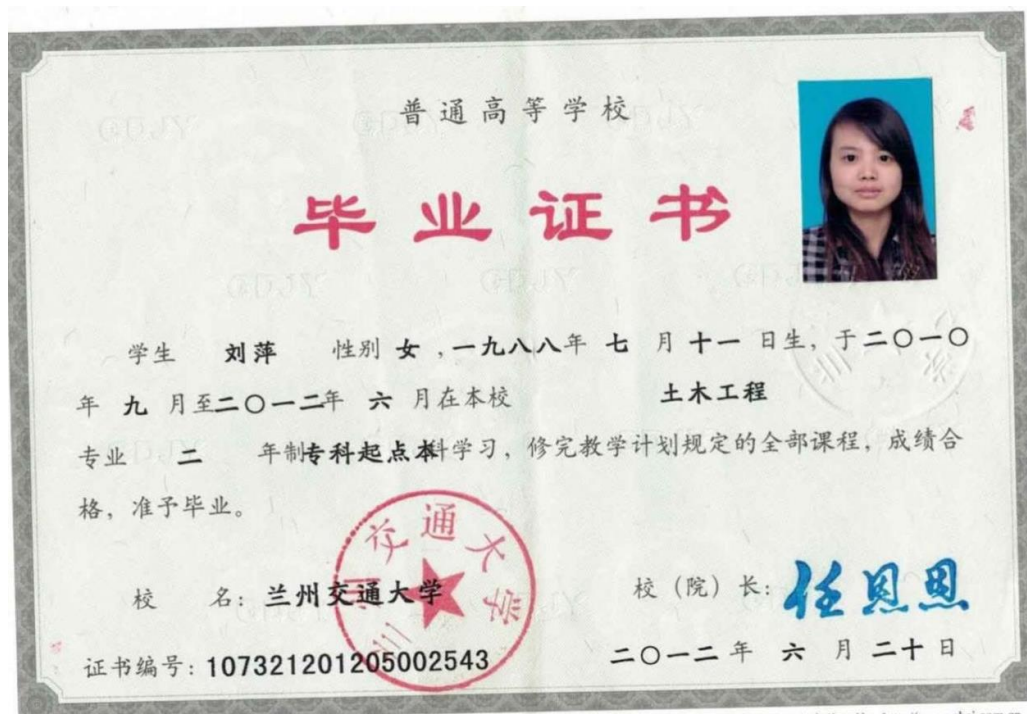 普通高等学校
毕业证书
学生 刘萍 性别 女，一九八八年 七 月 十一 日生，于二〇一〇
年 九 月至二〇一二年 六 月在本校 土木工程
专业 二 年制专科起点本科学习，修完教学计划规定的全部课程，成绩合
格，准予毕业。
兰州交通大学
校 名：兰州交通大学
校（院）长：任恩恩
证书编号：107321201205002543
二〇一二 年 六 月 二十 日